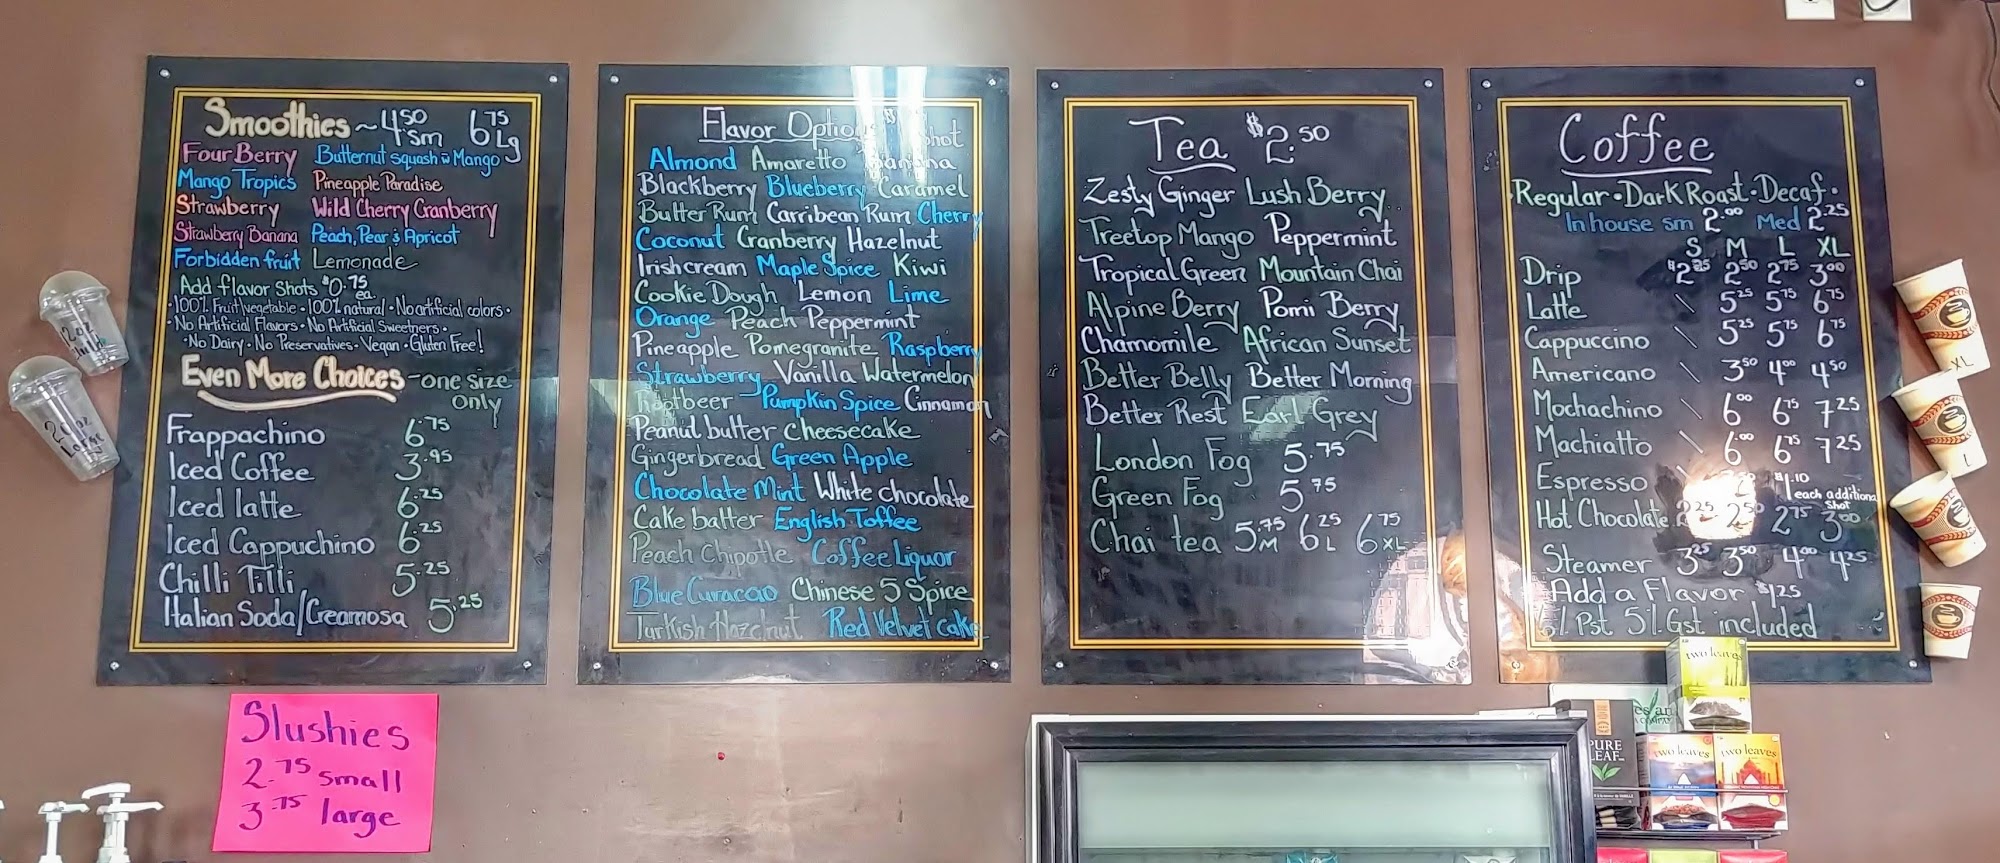 Smoothies ~ 4.50 sm 6.75 Lg
Four Berry Butternut squash w Mango
Mango Tropics Pineapple Paradise
Strawberry Wild Cherry Cranberry
Strawberry Banana Peach, Pear & Apricot
Forbidden fruit Lemonade
Add flavor Shots $0.75 ea.
• 100% Fruit/vegetable • 100% natural • No artificial colors •
• No Artificial Flavors • No Artificial Sweetners •
• No Dairy • No Preservatives • Vegan • Gluten Free!
Even More Choices - one size only
Frappachino 6.75
Iced Coffee 3.95
Iced latte 6.25
Iced Cappuchino 6.25
Chilli Tilli 5.25
Italian Soda/Creamosa 5.25
Slushies
2.75 small
3.75 large
Flavor Options Shot
Almond Amaretto Banana
Blackberry Blueberry Caramel
Butter Rum Carribean Rum Cherry
Coconut Cranberry Hazelnut
Irish cream Maple Spice Kiwi
Cookie Dough Lemon Lime
Orange Peach Peppermint
Pineapple Pomegranite Raspberry
Strawberry Vanilla Watermelon
Rootbeer Pumpkin Spice Cinnamon
Peanut butter cheesecake
Gingerbread Green Apple
Chocolate Mint White chocolate
Cake batter English Toffee
Peach Chipotle Coffee Liquor
Blue Curacao Chinese 5 Spice
Turkish Hazelnut Red Velvet cake
Tea $2.50
Zesty Ginger Lush Berry
Treetop Mango Peppermint
Tropical Green Mountain Chai
Alpine Berry Pomi Berry
Chamomile African Sunset
Better Belly Better Morning
Better Rest Earl Grey
London Fog 5.75
Green Fog 5.75
Chai tea 5.75 M 6.25 L 6.75 XL
Coffee
Regular • Dark Roast • Decaf •
In house sm 2.00 Med 2.25
S M L XL
Drip $2.25 2.50 2.75 3.00
Latte \ 5.25 5.75 6.75
Cappuccino \ 5.25 5.75 6.75
Americano 3.50 4.00 4.50
Mochachino \ 6.00 6.75 7.25
Machiatto \ 6.00 6.75 7.25
Espresso $1.10 each additional Shot
Hot Chocolate 2.25 2.50 2.75 3.00
Steamer 3.25 3.50 4.00 4.25
Add a Flavor $1.25
Pst 5% Gst included
XL
L
20oz
Large
two leaves
PURE
LEAF
two leaves
two leaves